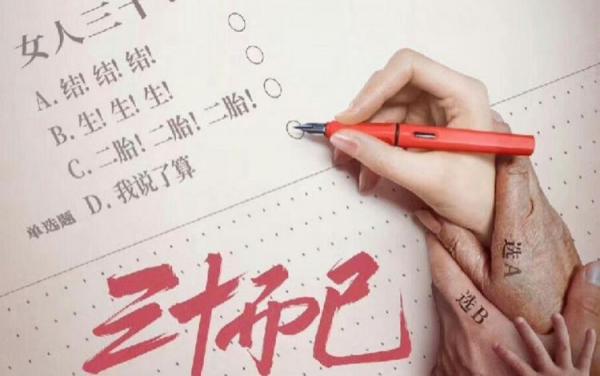 女人三十
A. 结! 结! 结!
B. 生! 生! 生!
C. 二胎! 二胎! 二胎!
D. 我说了算
单选题
三十而已
选A
选B